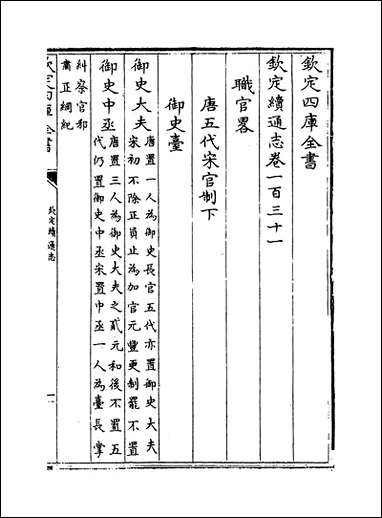 欽定四庫全書
欽定續通志卷一百三十一
職官畧
唐五代宋官制下
御史臺
御史大夫唐置一人為御史長官五代亦置御史大夫
宋初不除正員止為加官元豐更制罷不置
御史中丞唐置三人為御史大夫之貳元和後不置五
代仍置御史中丞宋置中丞一人為臺長掌
糾察官邪
肅正綱紀
欽定四庫全書
欽定續通志
一